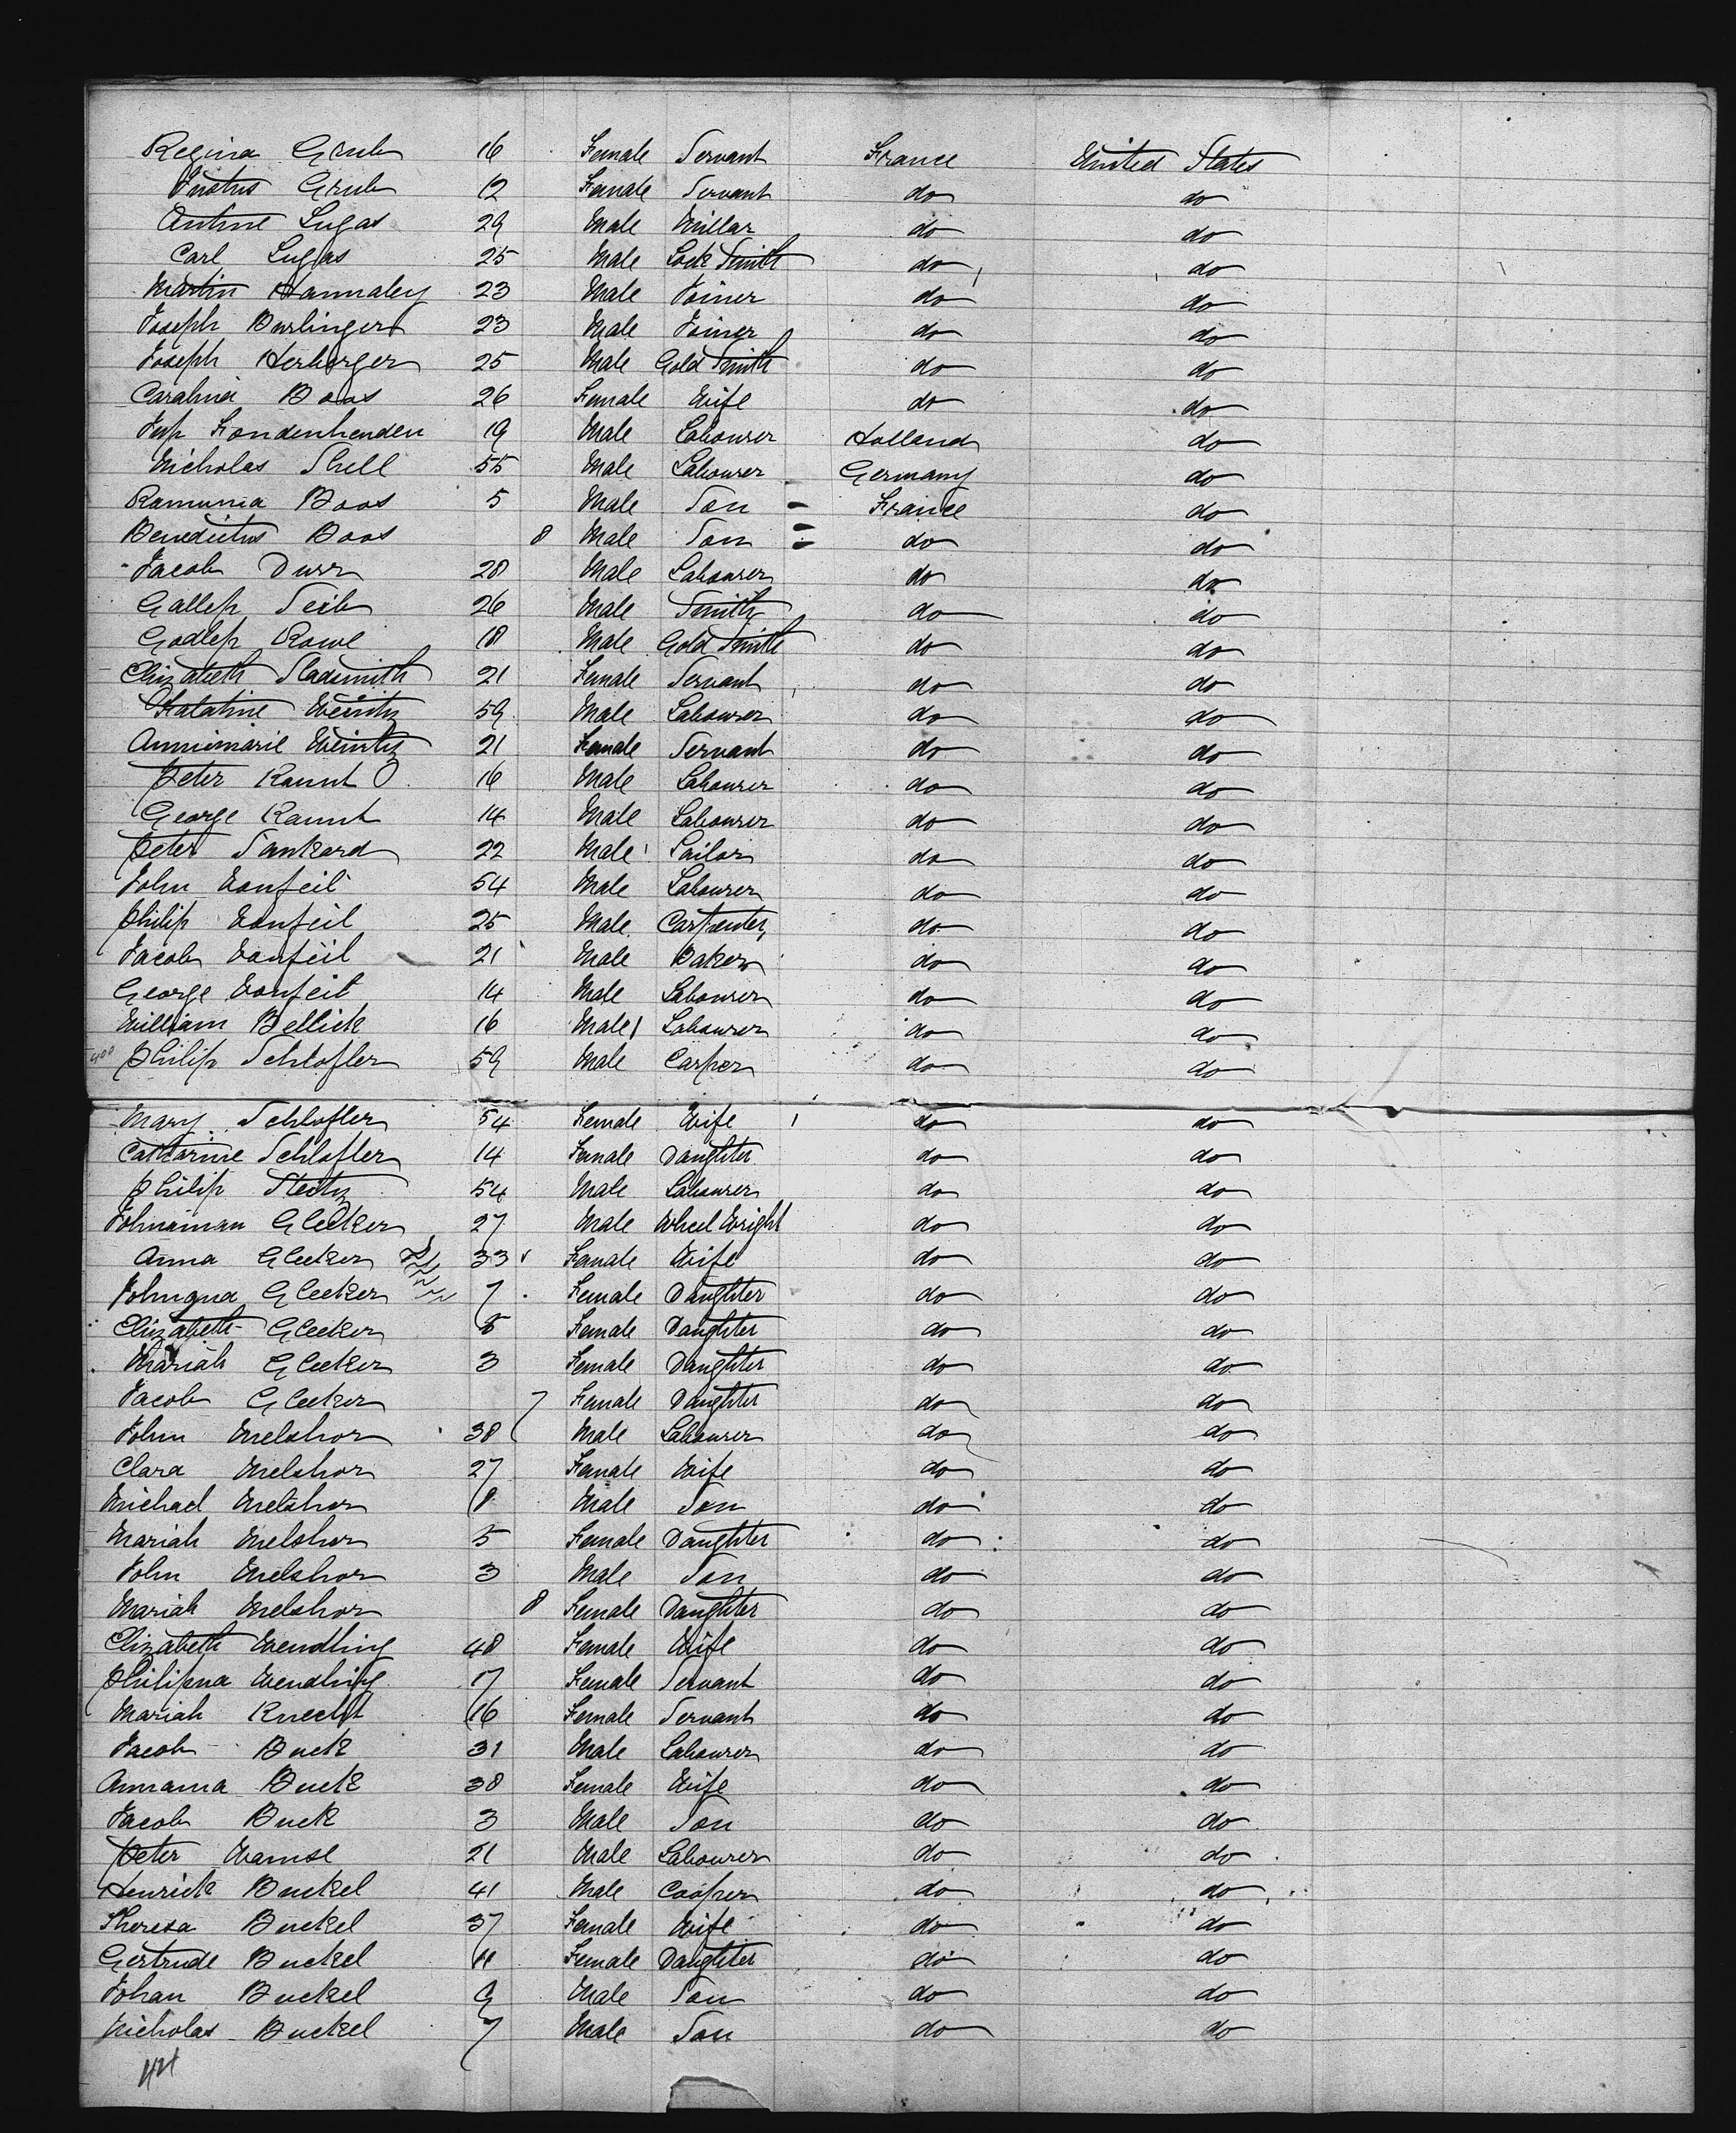 Regina Grub 16 Female Servant France United States
Justus Grub 12 Female Servant do do
Antine Lugas 29 Male Millar do do
Carl Lugas 25 Male Lock Smith do do
Martin Hannaley 23 Male Joiner do do
Joseph Burlinger 23 Male Joiner do do
Joseph Herberger 25 Male Gold Smith do do
Caralina Boos 26 Female Wife do do
Fondenhenden 19 Male Labourer Holland do
Nicholas Shell 55 Male Labourer Germany do
Ramunia Boos 5 Male Son France do
Benedictus Boos 8 Male Son do do
Jacob Durr 28 Male Labourer do do
Gallep Seib 26 Male Smith do do
Godlep Rowe 18 Male Gold Smith do do
Elizabeth Sladsmith 21 Female Servant do do
59 Male Labourer do do
Annimarie Weintz 21 Female Servant do do
Peter Raunt 16 Male Labourer do do
George Raunt 14 Male Labourer do do
Peter Sankard 22 Male Sailor do do
John Vonfeil 54 Male Labourer do do
Philip Vonfeil 25 Male Carpenter do do
Jacob Vonfeil 21 Male Baker do do
George Vonfeil 14 Male Labourer do do
William Bellick 16 Male Labourer do do
400 Philip Schlofler 59 Male Carper do do
Mary Schlofler 54 Female Wife do do
Catharine Schlofler 14 Female Daughter do do
Philip Steitz 54 Male Labourer do do
Johnaman Glecker 27 Male Wheel Wright do do
Anna Glecker 33 Female Wife do do
Johngna Glecker 7 Female Daughter do do
Elizabeth Glecker 5 Female Daughter do do
Mariah Glecker 3 Female Daughter do do
Jacob Glecker 7 Female Daughter do do
John Melshor 38 Male Labourer do do
Clara Melshor 27 Female Wife do do
Michael Melshor 8 Male Son do do
Mariah Melshor 5 Female Daughter do do
John Melshor 3 Male Son do do
Mariah Melshor 8 Female Daughter do do
Elizabeth Wendling 48 Female Wife do do
Philipna Wendling 17 Female Servant do do
Mariah Knecht 16 Female Servant do do
Jacob Buck 31 Male Labourer do do
Annama Buck 38 Female Wife do do
Jacob Buck 3 Male Son do do
Peter Wamse 21 Male Labourer do do
Henrick Buckel 41 Male Cooper do do
Theresa Buckel 37 Female Wife do do
Gertrude Buckel 11 Female Daughter do do
Johan Buckel 9 Male Son do do
Nicholas Buckel 7 Male Son do do